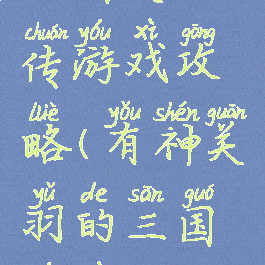 chuán yóu xì gōng
传游戏攻
lüè yǒu shén guān
略(有神关
yǔ de sān guó
羽的三国